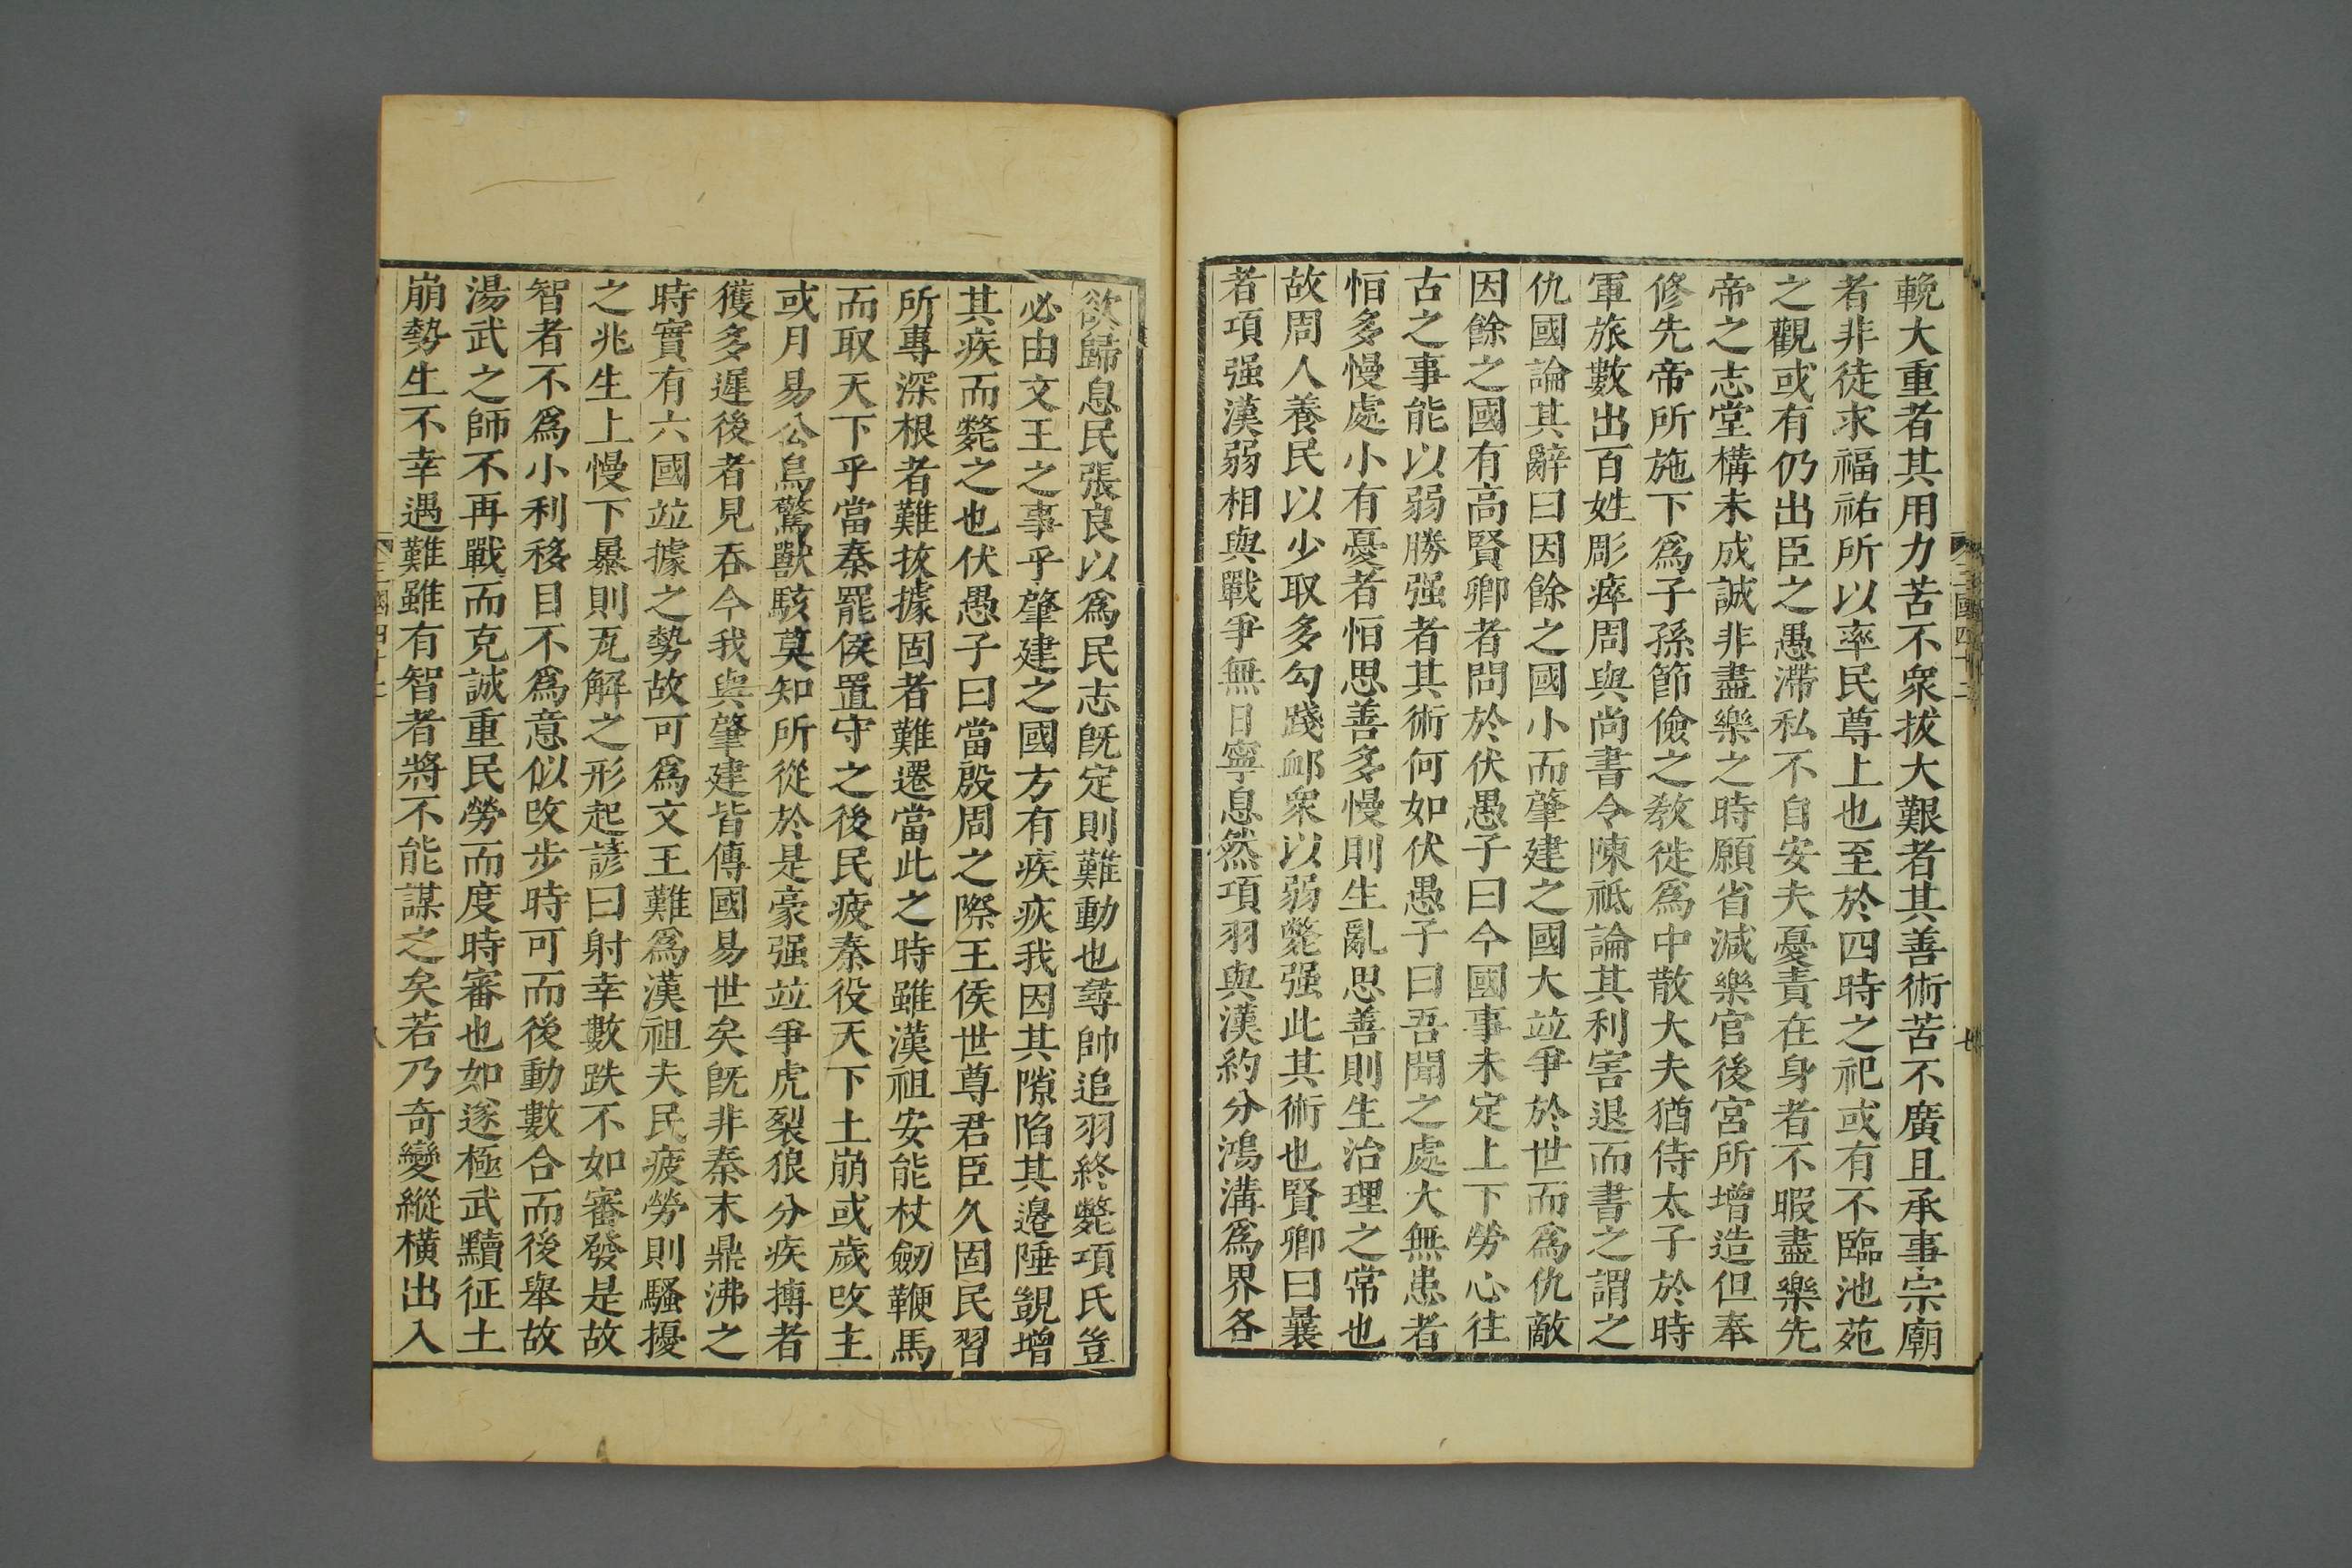 輓大重者其用力苦不衆拔大艱者其善術苦不廣且承事宗廟
者非徒求福祐所以率民尊上也至於四時之祀或有不臨池苑
之觀或有仍出臣之愚滯私不自安夫憂責在身者不暇盡樂先
帝之志堂構未成誠非盡樂之時願省減樂官後宮所增造但奉
修先帝所施下爲子孫節儉之教徙爲中散大夫猶侍太子於時
軍旅數出百姓彫瘁周與尚書令陳祗論其利害退而書之謂之
仇國論其辭曰因餘之國小而肇建之國大竝爭於世而爲仇敵
因餘之國有高賢卿者問於伏愚子曰今國事未定上下勞心往
古之事能以弱勝强者其術何如伏愚子曰吾聞之處大無患者
恒多慢處小有憂者恒思善多慢則生亂思善則生治理之常也
故周人養民以少取多勾踐邺衆以弱斃强此其術也賢卿曰曩
者項强漢弱相與戰爭無日寧息然項羽與漢約分鴻溝爲界各
三國四十二
七
欲歸息民張良以爲民志旣定則難動也尋帥追羽終斃項氏豈
必由文王之事乎肇建之國方有疾疢我因其隙陷其邊陲覬增
其疾而斃之也伏愚子曰當殷周之際王侯世尊君臣久固民習
所專深根者難拔據固者難遷當此之時雖漢祖安能杖劒鞭馬
而取天下乎當秦罷侯置守之後民疲秦役天下土崩或歲改主
或月易公鳥驚獸駭莫知所從於是豪强竝爭虎裂狼分疾搏者
獲多遲後者見吞今我與肇建皆傳國易世矣旣非秦末鼎沸之
時實有六國竝據之勢故可爲文王難爲漢祖夫民疲勞則騷擾
之兆生上慢下暴則瓦解之形起諺曰射幸數跌不如審發是故
智者不爲小利移目不爲意似改步時可而後動數合而後舉故
湯武之師不再戰而克誠重民勞而度時審也如遂極武黷征土
崩勢生不幸遇難雖有智者將不能謀之矣若乃奇變縱橫出入
三國四十二
八